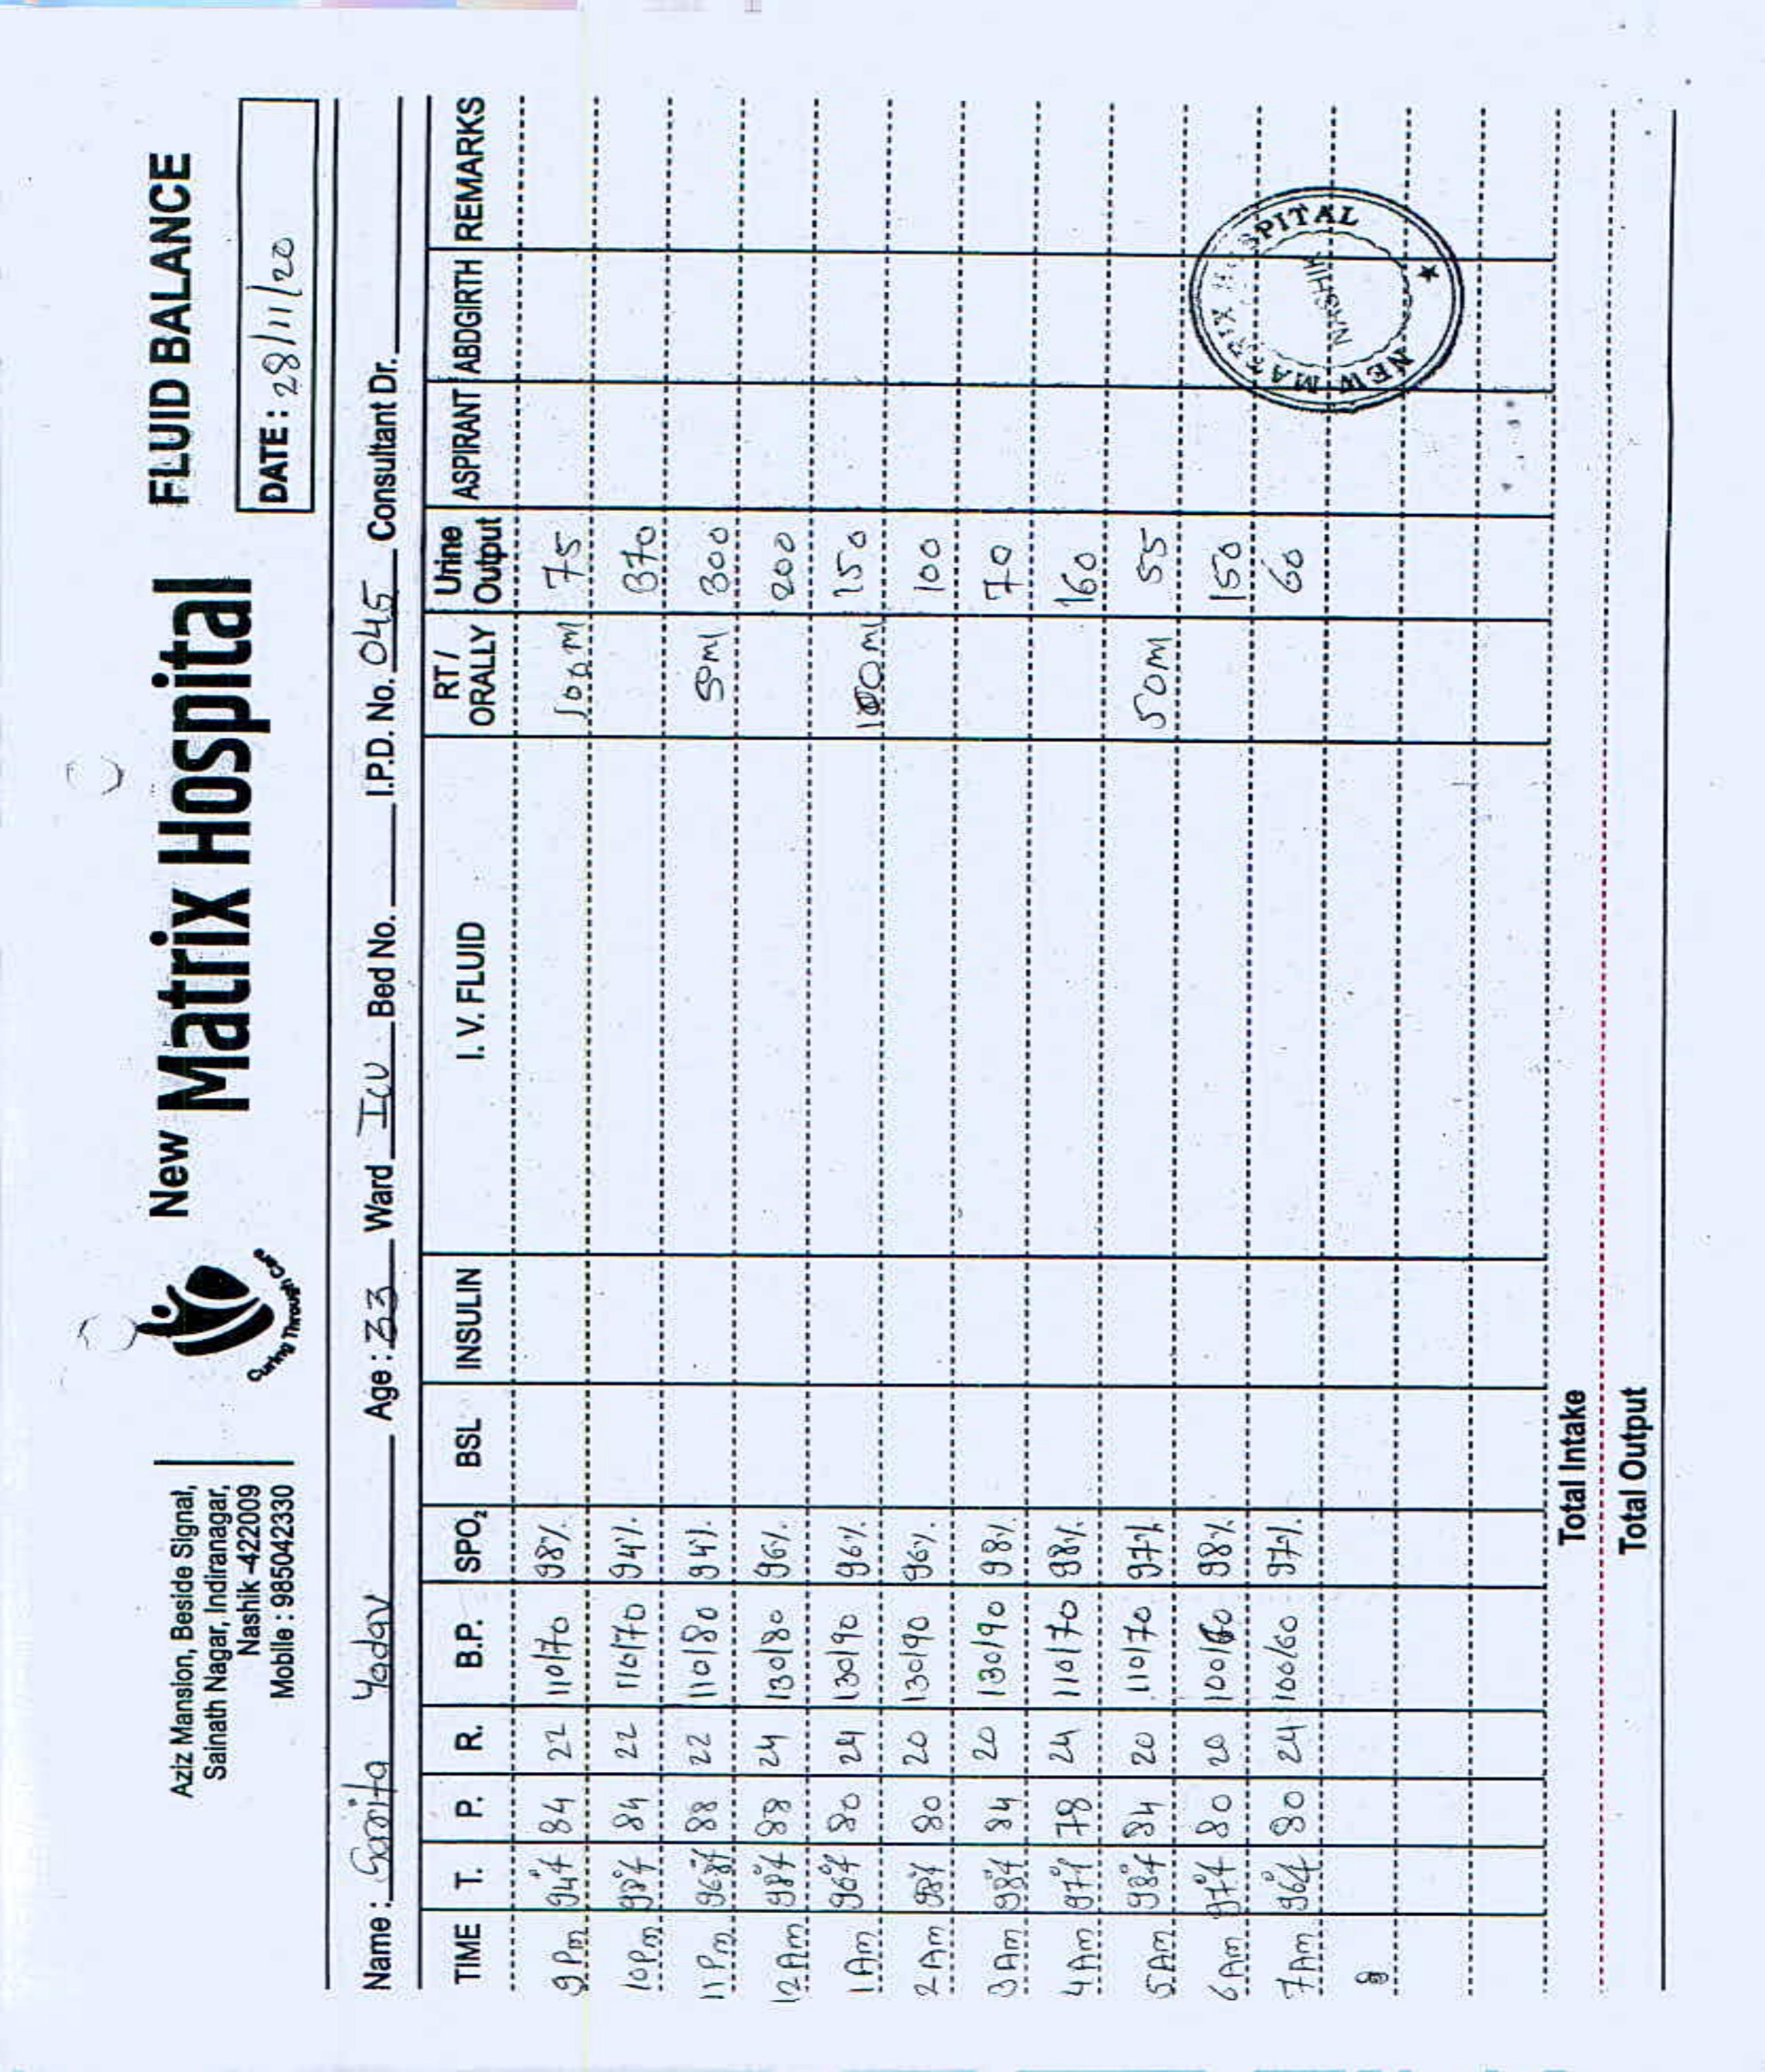 Aziz Mansion, Beside Signal,
Sainath Nagar, Indiranagar,
Nashik-422009
Mobile : 985042330
Curing Through Care
New Matrix Hospital
FLUID BALANCE
DATE : 28/11/20
Name : Sarita Yadav Age : 33 Ward ICU Bed No. I.P.D. No. 045 Consultant Dr.
TIME T. P. R. B.P. SPO2 BSL INSULIN I. V. FLUID RT / ORALLY Urine Output ASPIRANT ABDGIRTH REMARKS
9 Pm 94°f 84 22 110/70 98% 100 ml 75
10 Pm 98°f 84 22 110/70 94% 370
11 Pm 96.8°f 88 22 110/80 94% 50ml 300
12 Am 98°f 88 24 130/80 96% 200
1 Am 96°f 80 24 130/90 96% 100ml 150
2 Am 98°f 80 20 130/90 96% 100
3 Am 98°f 84 20 130/90 98% 70
4 Am 97°f 78 24 110/70 98% 160
5 Am 98°f 84 20 110/70 97% 50ml 55
6 Am 97°f 80 20 100/60 98% 150
7 Am 96°f 80 24 100/60 97% 60
Total Intake
Total Output
NEW MATRIX HOSPITAL
NASHIK